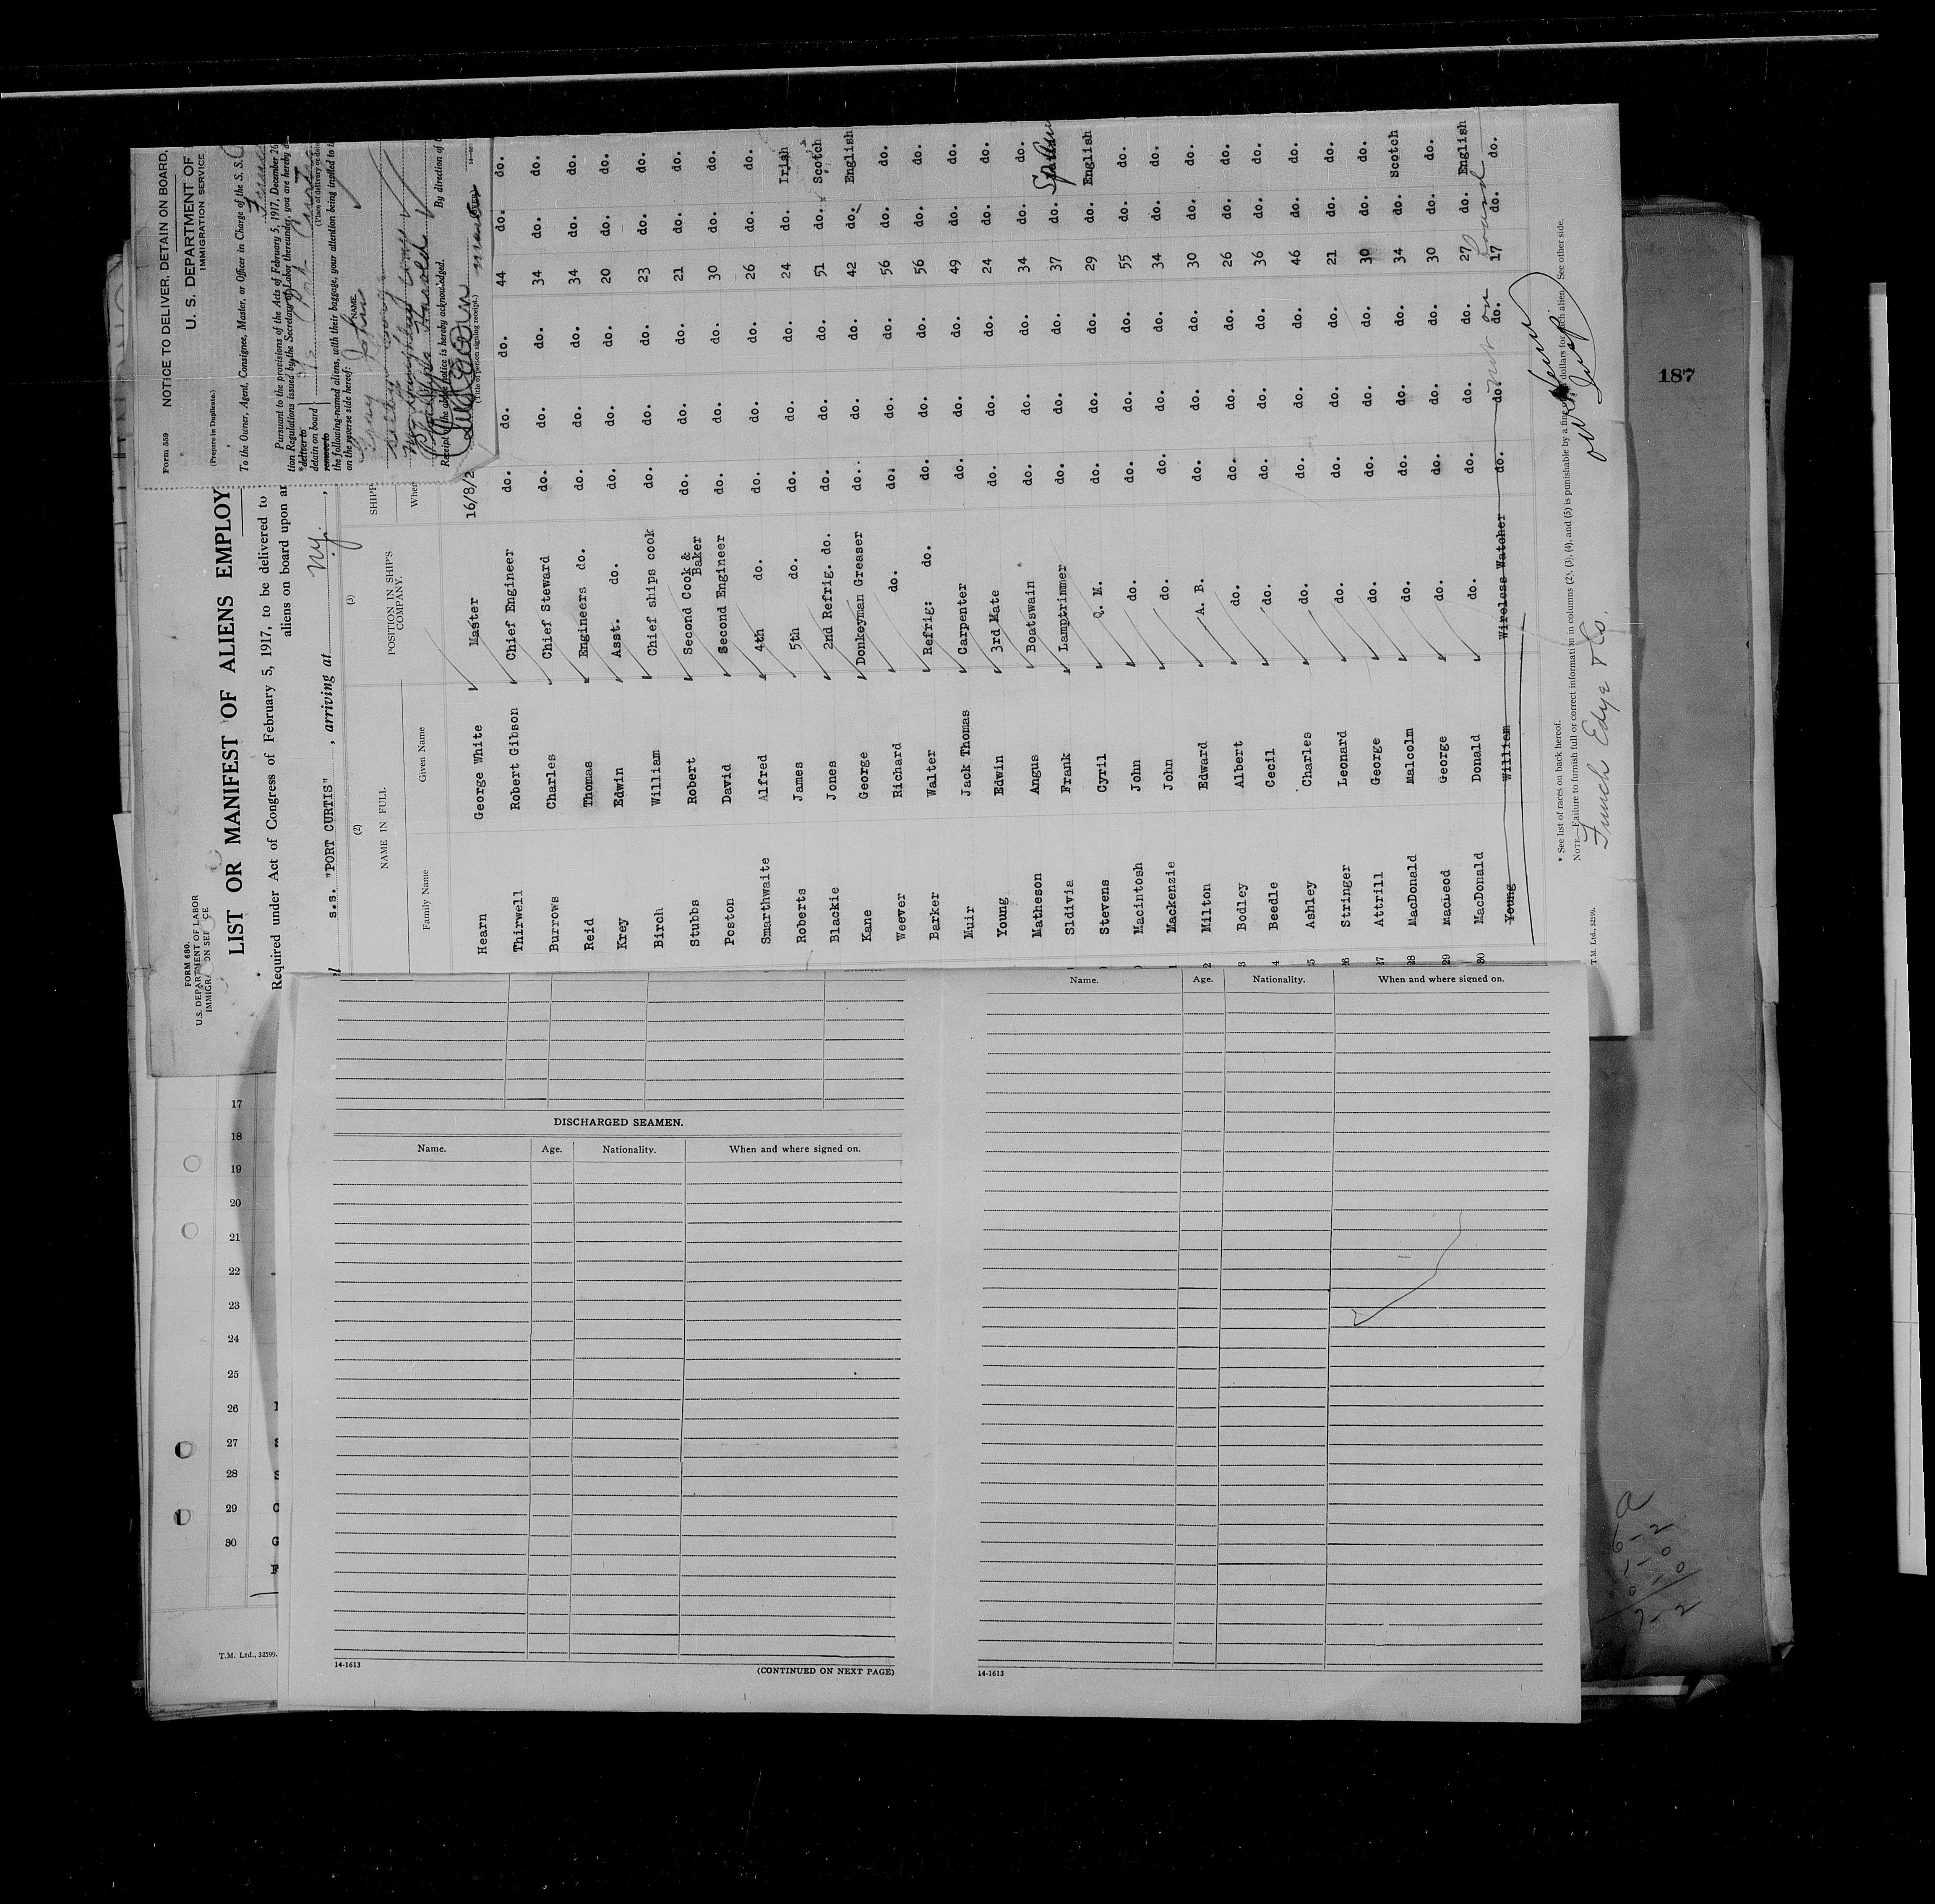 Form 559 NOTICE TO DELIVER, DETAIN ON BOARD,
U. S. DEPARTMENT OF
IMMIGRATION SERVICE
(Prepare in Duplicate.)
To the Owner, Agent, Consignee, Master, or Officer in Charge of the S. S.
Pursuant to the provisions of the Acts of February 5, 1917, December 26
tion Regulations issued by the Secretary of Labor thereunder, you are hereby
*deliver to
detain on board
remove to
Port Curtis
the following-named aliens, with their baggage, your attention being invited to
on the reverse side hereof:
NAME
Gray John
Harold
By direction of
Receipt of the above notice is hereby acknowledged.
(Title of person signing receipt.)
FORM 680.
U.S. DEPARTMENT OF LABOR
IMMIGRATION SERVICE
LIST OR MANIFEST OF ALIENS EMPLOY
Required under Act of Congress of February 5, 1917, to be delivered to
aliens on board upon ar
s.s. "PORT CURTIS" , arriving at N.Y. ,
(2) (3)
NAME IN FULL POSITION IN SHIP'S COMPANY. SHIPP
Family Name Given Name Whe
Hearn George White Master 16/8/2
Thirwell Robert Gibson Chief Engineer do. do. do. 44 do. do.
Burrows Charles Chief Steward do. do. do. 34 do. do.
Reid Thomas Engineers do. do. do. do. 34 do. do.
Krey Edwin Asst. do. do. do. do. 20 do. do.
Birch William Chief ships cook do. do. do. 23 do. do.
Stubbs Robert Second Cook & Baker do. do. do. 21 do. do.
Poston David Second Engineer do. do. do. 30 do. do.
Smarthwaite Alfred 4th do. do. do. do. 26 do. do.
Roberts James 5th do. do. do. do. 24 do. Irish
Blackie Jones 2nd Refrig. do. do. do. do. 51 do. Scotch
Kane George Donkeyman Greaser do. do. do. 42 do. English
Weever Richard do. do. do. do. 56 do. do.
Barker Walter Refrig: do. do. do. do. 56 do. do.
Muir Jack Thomas Carpenter do. do. do. 49 do. do.
Young Edwin 3rd Mate do. do. do. 24 do. do.
Matheson Angus Boatswain do. do. do. 34 do. do.
Sldivia Frank Lamptrimmer do. do. do. 37 do.
Stevens Cyril Q. M. do. do. do. 29 do. English
Macintosh John do. do. do. do. 55 do. do.
Mackenzie John do. do. do. do. 34 do. do.
2 Milton Edward A. B. do. do. do. 30 do. do.
3 Bodley Albert do. do. do. do. 26 do. do.
4 Beedle Cecil do. do. do. do. 36 do. do.
5 Ashley Charles do. do. do. do. 46 do. do.
26 Stringer Leonard do. do. do. do. 21 do. do.
27 Attrill George do. do. do. do. 30 do. do.
28 MacDonald Malcolm do. do. do. do. 34 do. Scotch
29 MacLeod George do. do. do. do. 30 do. do.
30 MacDonald Donald do. do. do. do. 27 do. English
Young William Wireless Watcher do. do. do. 17 do. do.
not on board
* See list of races on back hereof.
NOTE.—Failure to furnish full or correct information in columns (2), (3), (4), and (5) is punishable by a fine of dollars for each alien. See other side.
T.M. Ltd., 32599.
Funch Edye & Co.
187
Name. Age. Nationality. When and where signed on.
DISCHARGED SEAMEN.
Name. Age. Nationality. When and where signed on.
14-1613
(CONTINUED ON NEXT PAGE)
14-1613
17
18
19
20
21
22
23
24
25
26
27
28
29
30
T.M. Ltd., 32599.